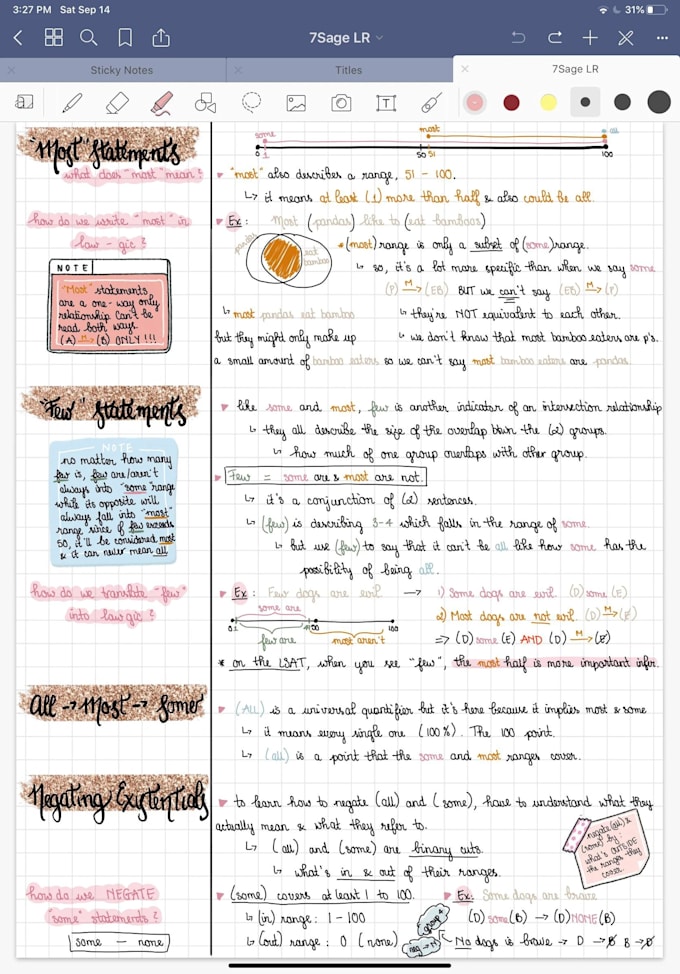 3:27 PM Sat Sep 14
31%
7Sage LR
Sticky Notes
Titles
7Sage LR
"Most" Statements
what does "most" mean?
some
most
all
0
1
50
51
100
"most" also describes a range, 51 - 100.
↳ it means at least (1) more than half & also could be all.
how do we write "most" in
law - gic?
Ex: Most (pandas) like to (eat bamboos)
pandas
eat
bamboo
* (most) range is only a subset of (some) range.
↳ so, it's a lot more specific than when we say some
(P) M→ (EB) BUT we can't say (EB) M→ (P)
↳ most pandas eat bamboo
↳ they're NOT equivalent to each other.
but they might only make up
↳ we don't know that most bamboo eaters are p's.
a small amount of bamboo eaters so we can't say most bamboo eaters are pandas.
NOTE
"Most" statements
are a one-way only
relationship Can't be
read both ways
(A) M→ (B) ONLY!!!
"Few" Statements
like some and most, few is another indicator of an intersection relationship
↳ they all describe the size of the overlap btwn the (2) groups.
↳ how much of one group overlaps with other group.
NOTE
no matter how many
few is, few are/aren't
always into "some" range
while its opposite will
always fall into "most"
range since if few exceeds
50, it'll be considered most
& it can never mean all
Few = some are & most are not.
↳ it's a conjunction of (2) sentences.
↳ (few) is describing 3-4 which falls in the range of some.
↳ but use (few) to say that it can't be all like how some has the
possibility of being all.
how do we translate "few"
into lawgic?
Ex: Few dogs are evil → 1) Some dogs are evil (D) some (E)
2) Most dogs are not evil (D) M→ (E̸)
⇒ (D) some (E) AND (D) M→ (E̸)
some are
0
1
50
100
few are
most aren't
* on the LSAT, when you see "few", the most half is more important infor.
All → Most → Some
(ALL) is a universal quantifier but it's here because it implies most & some
↳ it means every single one (100%). The 100 point.
↳ (all) is a point that the some and most ranges cover.
Negating Existentials
to learn how to negate (all) and (some), have to understand what they
actually mean & what they refer to.
↳ (all) and (some) are binary cuts.
↳ what's in & out of their ranges.
negate (all) &
(some) by:
what's OUTSIDE
the ranges they
cover.
how do we NEGATE
"some" statements?
some — none
(some) covers at least 1 to 100.
↳ (in) range: 1 - 100
↳ (out) range: 0 (none)
Ex: Some dogs are brave
(D) some (B) → (D) NONE (B)
group 4
neg → N
No dogs is brave → D → B̸ B → D̸